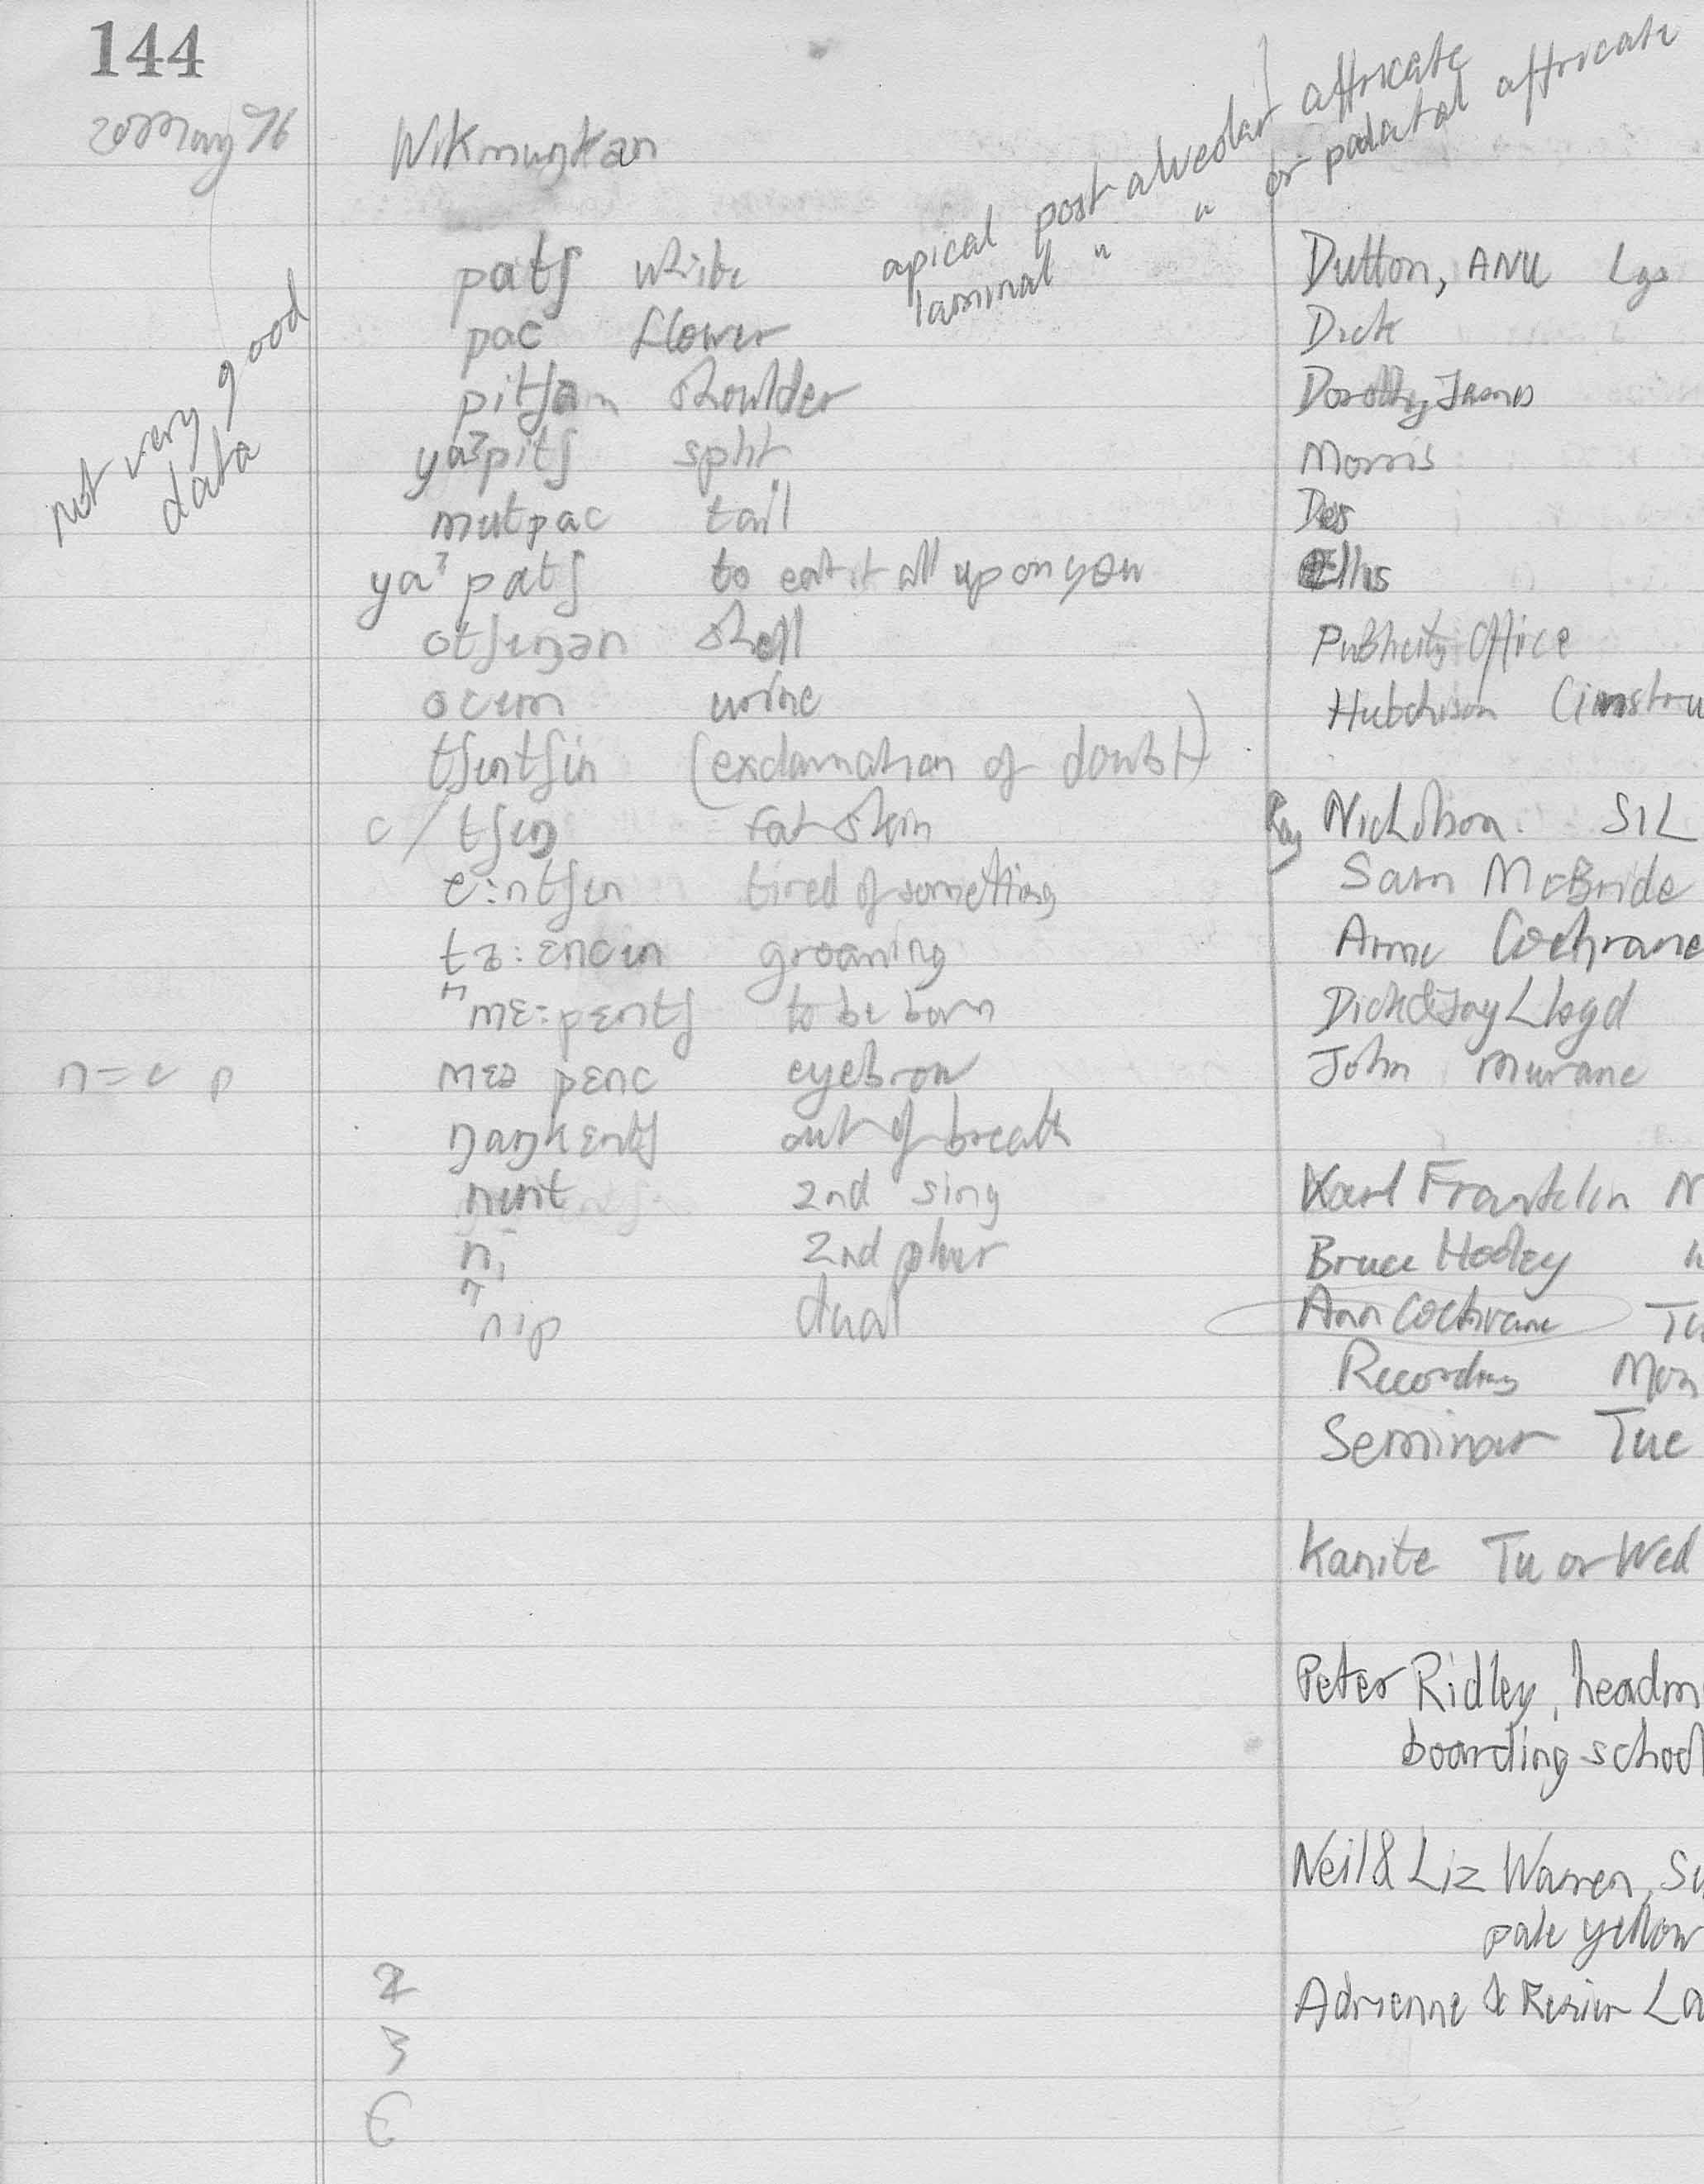 144
20 May 76
Wikmuŋkan
apical post alveolar affricate
laminal " " or palatal affricate
not very good
data
patʃ white
pac flower
pitʃam shoulder
yaʔpitʃ split
mutpac tail
yaʔ patʃ to eat it all up on you
otʃɩŋən shell
ocɩm urine
tʃɩntʃin (exclamation of doubt)
c / tʃɩŋ fat skin
e:ntʃɩn tired of something
groaning
mɛ:pɛntʃ to be born
n = c p
mɛə penc eyebrow
ŋaŋkɛntʃ out of breath
nɩnt 2nd sing
ni 2nd plur
nip dual
2
3
Є
Dutton, ANU Lgs
Dick
Dorothy James
Morris
Des
Ellis
Publicity Office
Hutchison (instru
Ray Nicholson. SIL
Sam McBride
Anne Cochrane
Dick & Joy Lloyd
John Murane
Karl Franklin N
Bruce Hooley
Ann Cochrane Tu
Recording Mon
Seminar Tue
Kanite Tu or Wed
Peter Ridley, headm
boarding school
Neil & Liz Warren, Su
pale yellow
Adrienne & La